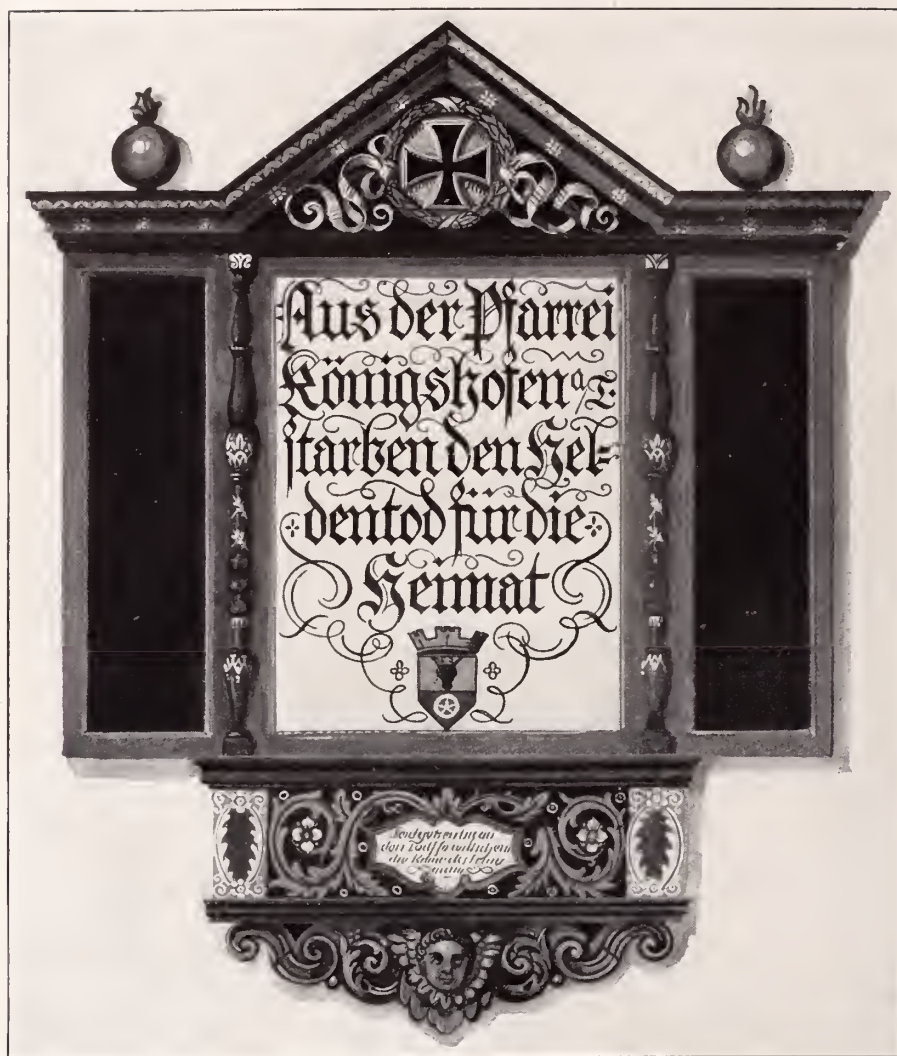 Aus der Pfarrei
Königshofen a/T:
starben den Hel=
dentod für die
Heimat
den
die